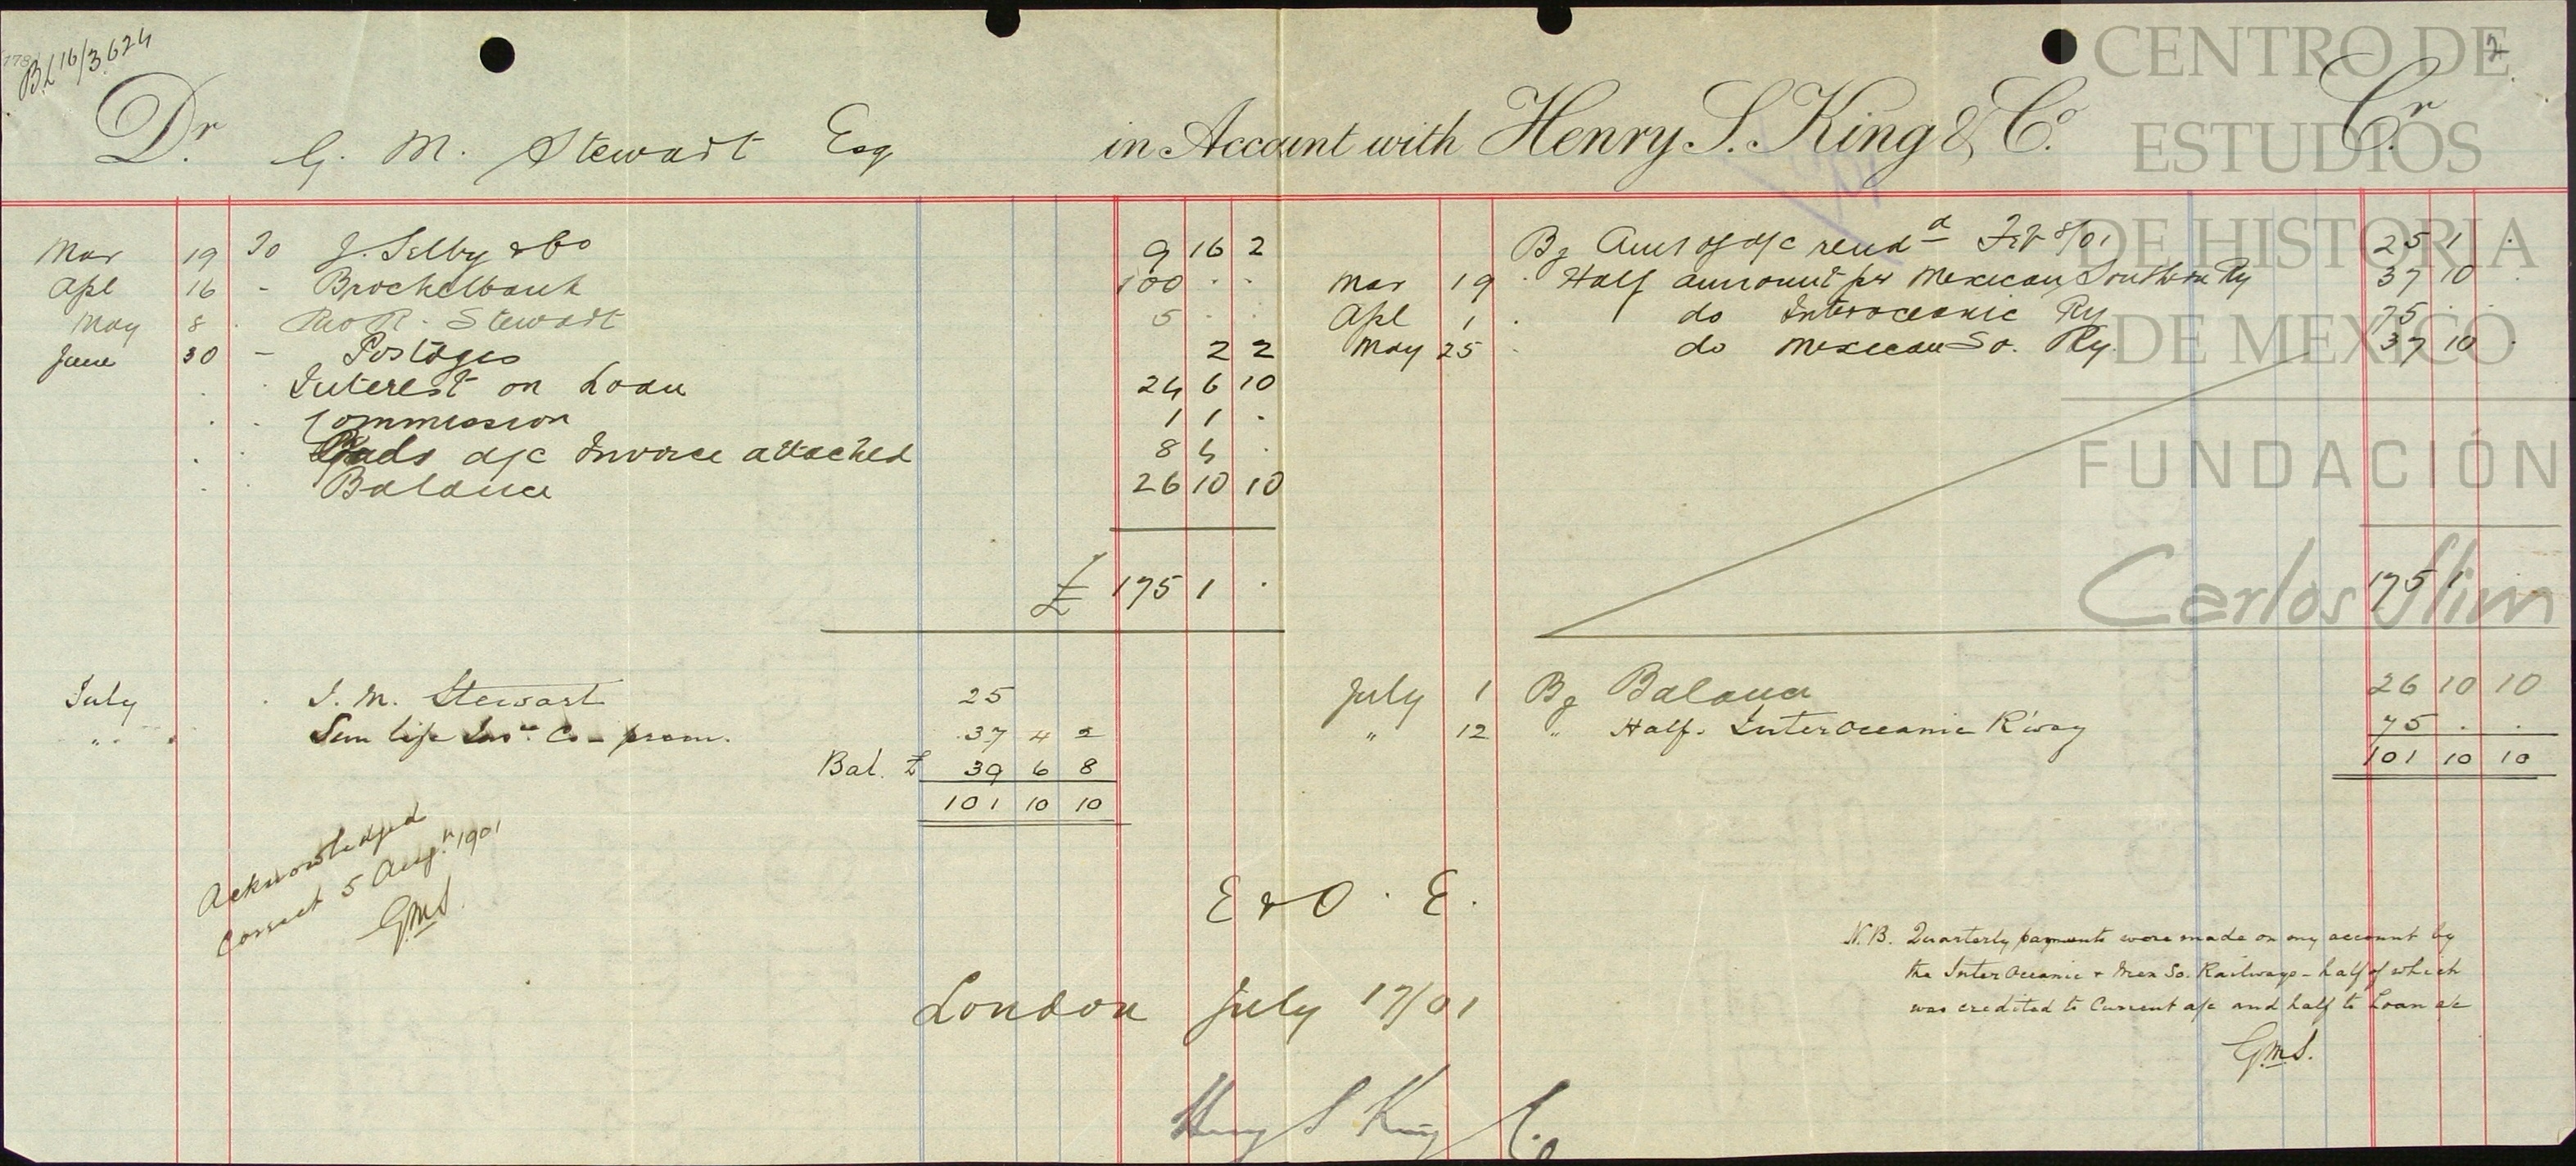 BL 16/3.624
2.
Dr. G. M. Stewart Esq in Account with Henry S. King & Co. Cr.
Mar 19 To J. Selby & Co 9 16 2
Apl 16 - Brockelbank 100 . .
May 8 . R. Stewart 5 . .
June 30 - Postages 2 2
. . Interest on Loan 24 6 10
. . Commission 1 1 .
. . a/c Invoice attached 8 4 .
. . Balance 26 10 10
£ 175 1 .
By Amt of a/c rendd Feb 8/01 25 1 .
Mar 19 . Half amount per Mexican Southern Ry 37 10 .
Apl 1 . do Interoceanic Ry 75 . .
May 25 . do Mexican So. Ry. 37 10 .
175 1 .
July . J. M. Stewart 25
" . Sun Life Insce Co - prem. 37 4 2
Bal. £ 39 6 8
101 10 10
July 1 By Balance 26 10 10
" 12 " Half. InterOceanic R'way 75 . .
101 10 10
Acknowledged
correct 5 Augt 1901
GMS.
E & O. E.
London July 17/01
Henry S King & Co
N.B. Quarterly payments were made on my account by
the InterOceanic & Mex So. Railways - half of which
was credited to Current a/c and half to Loan a/c
GMS.
CENTRO DE
ESTUDIOS
DE HISTORIA
DE MEXICO
FUNDACIÓN
Carlos Slim